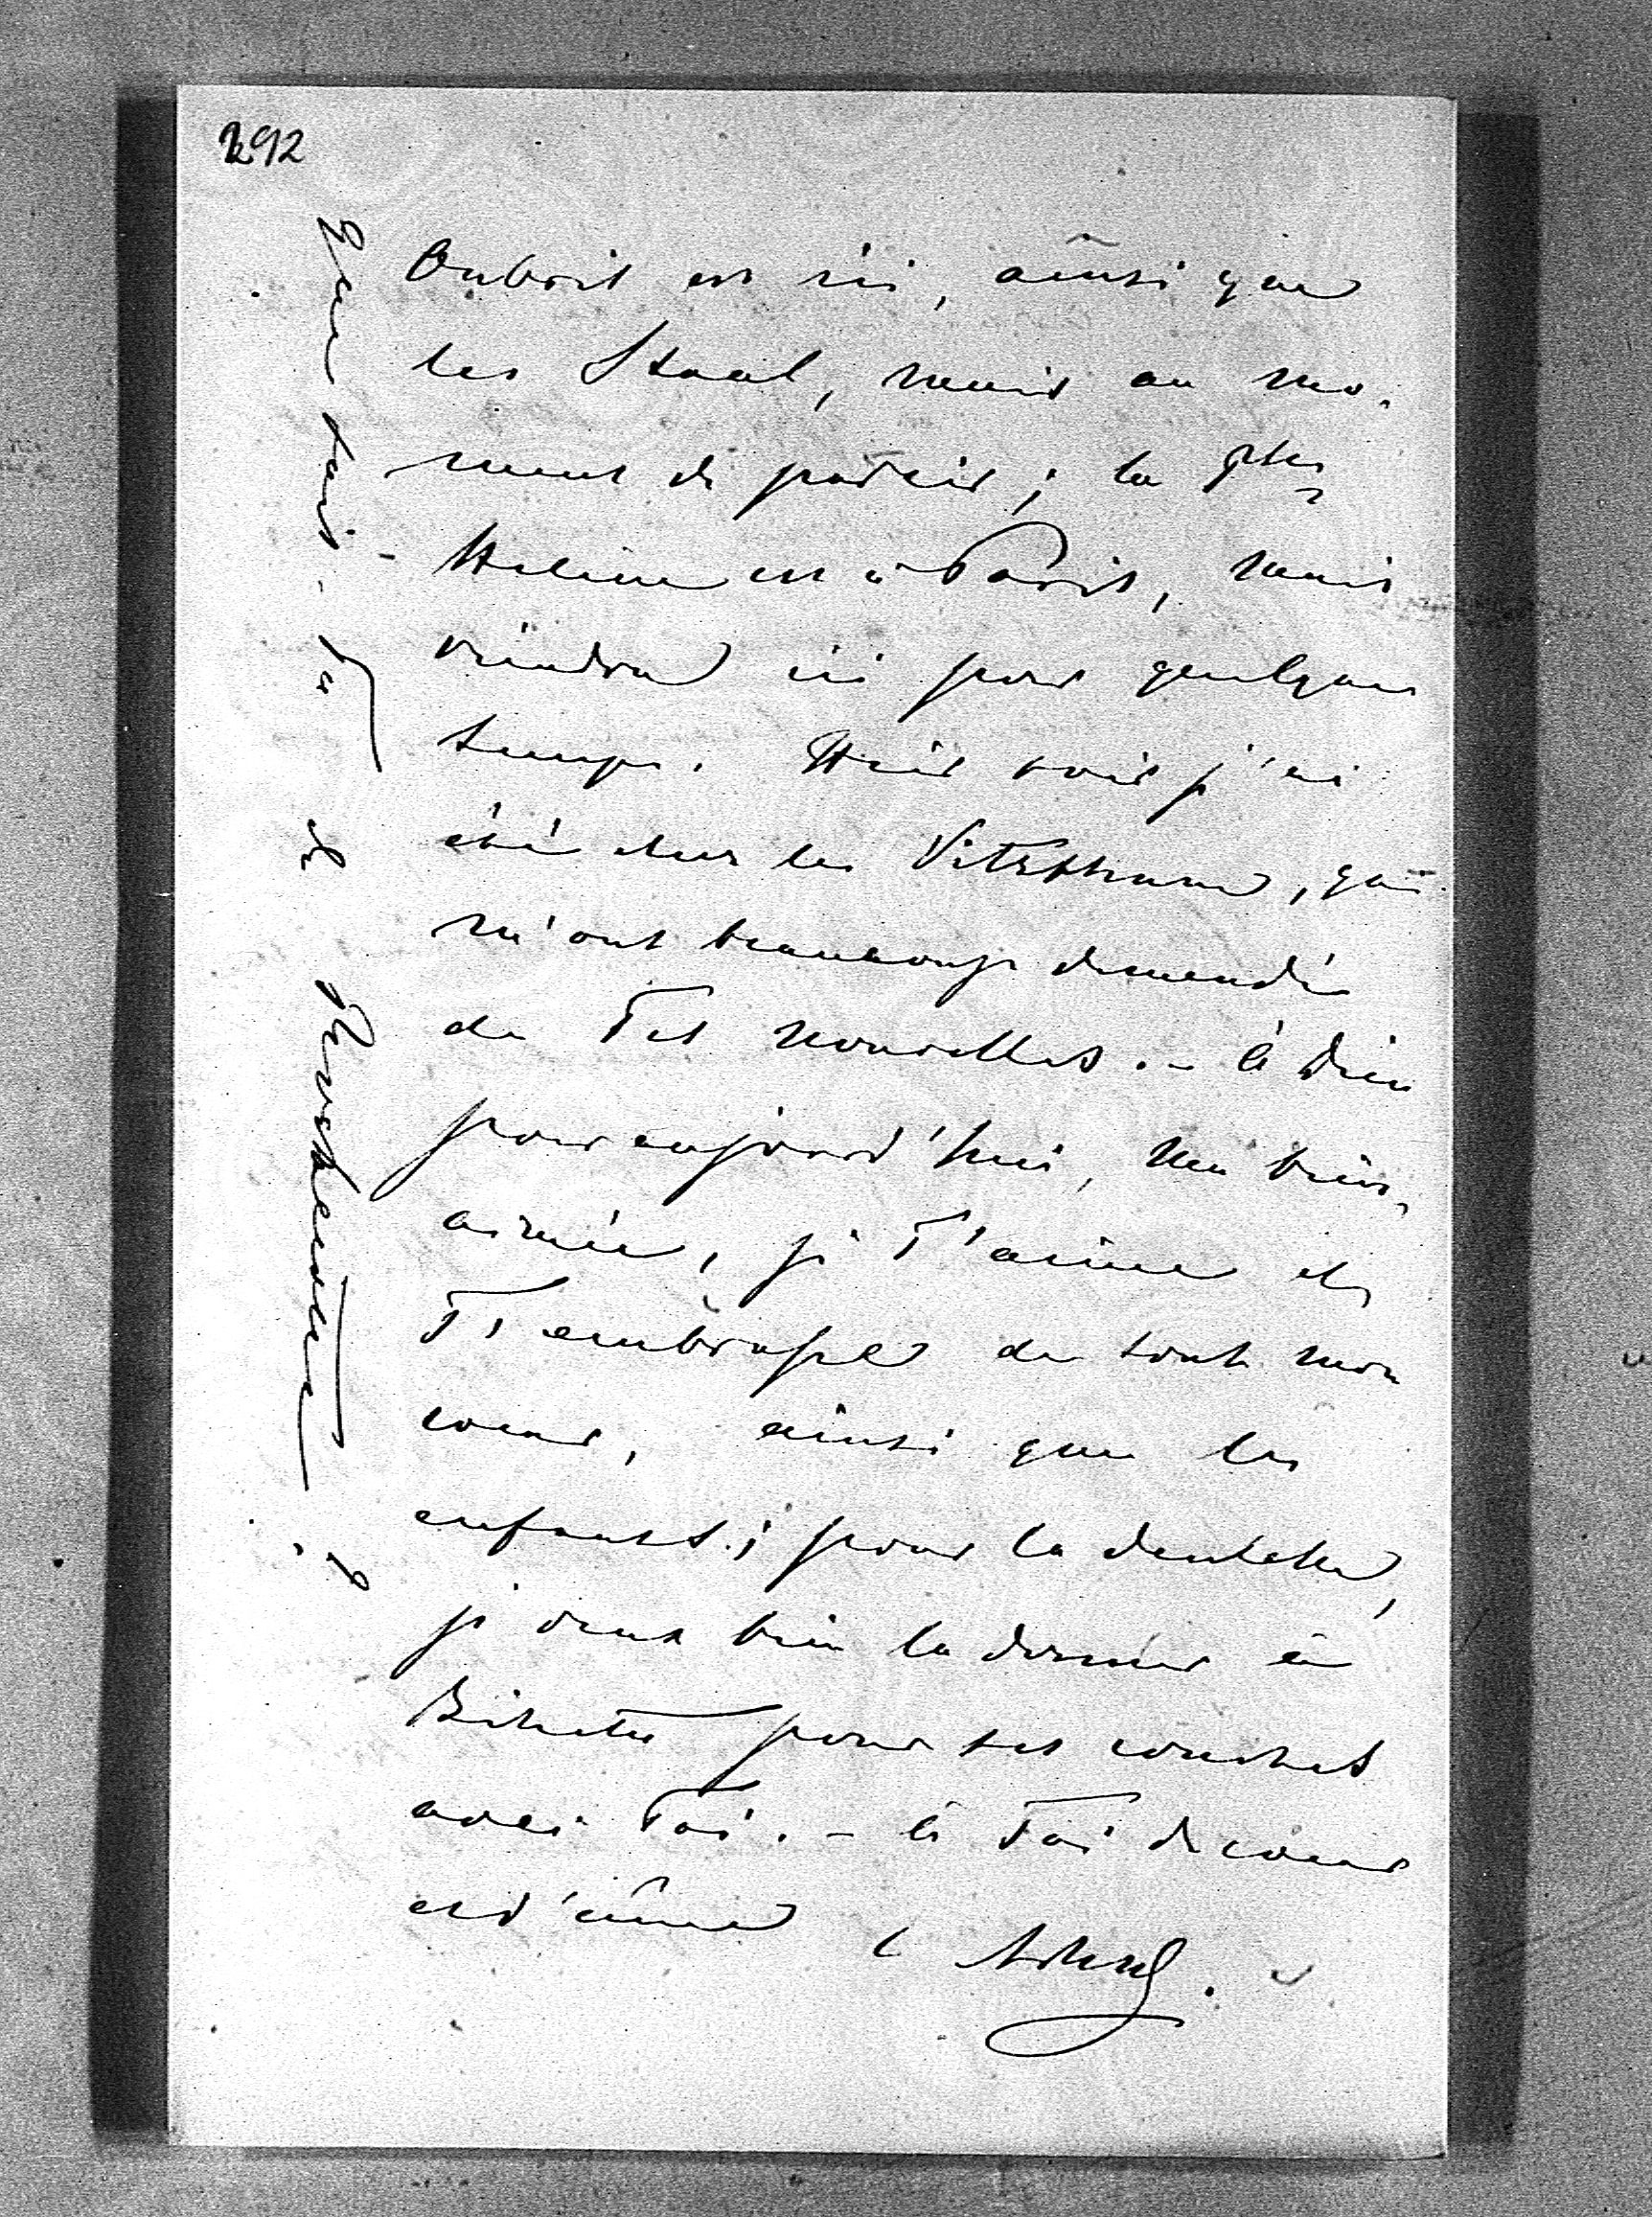 292
Oubril est ici, ainsi que
les Staal, mais au mo-
ment de partir ; la Psse
Hélène est à Paris, mais
viendra ici pour quelque
temps. Hier soir j'ai
été chez les Vitzthum, qui
m'ont beaucoup demandé
de Tes nouvelles. – à Dieu
pour aujourd'hui, ma bien-
aimée, je T'aime et
T'embrasse de tout mon
coeur, ainsi que les
enfants ; pour la dentelle,
je veux bien la donner à
pour ses couches
avec Toi. – à Toi de coeur
et d'âme
Que fait-on de ?